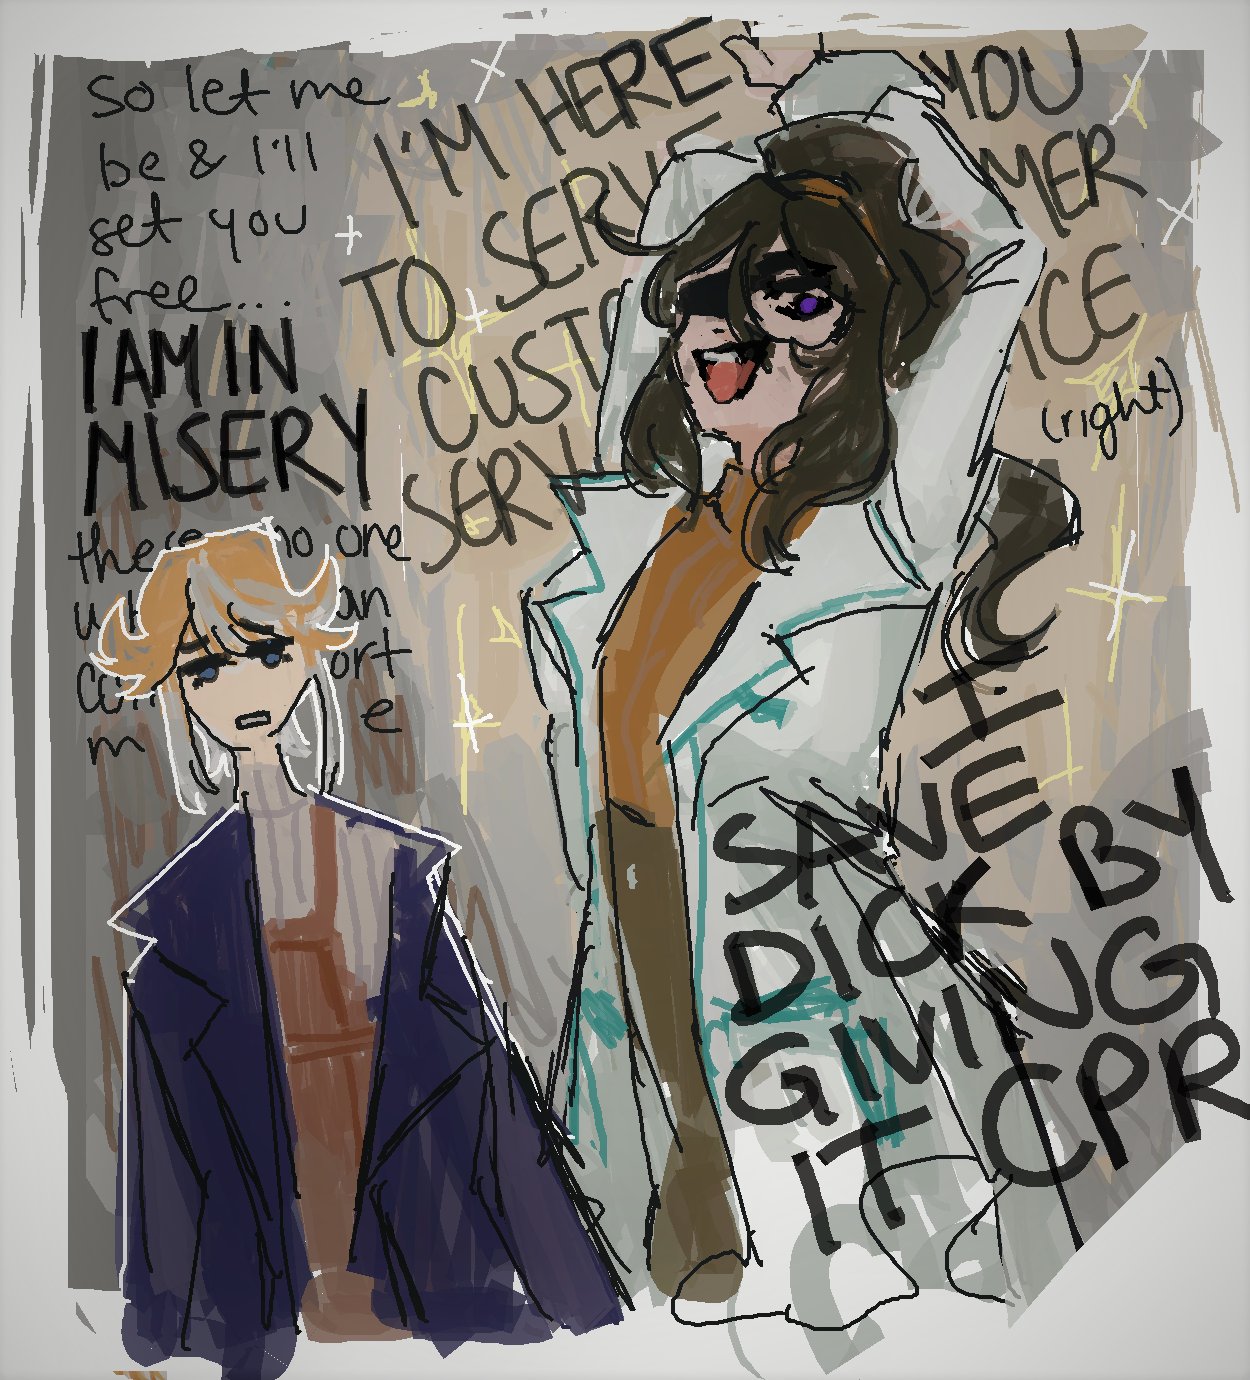 So let me
be & I'll
set you
free...
I AM IN
MISERY
there no one
an
ort
m e
I'M HERE YOU
TO SERVE MER
CUSTO ICE
SERV
(right)
I
SAVE
DICK BY
GIVING
IT CPR